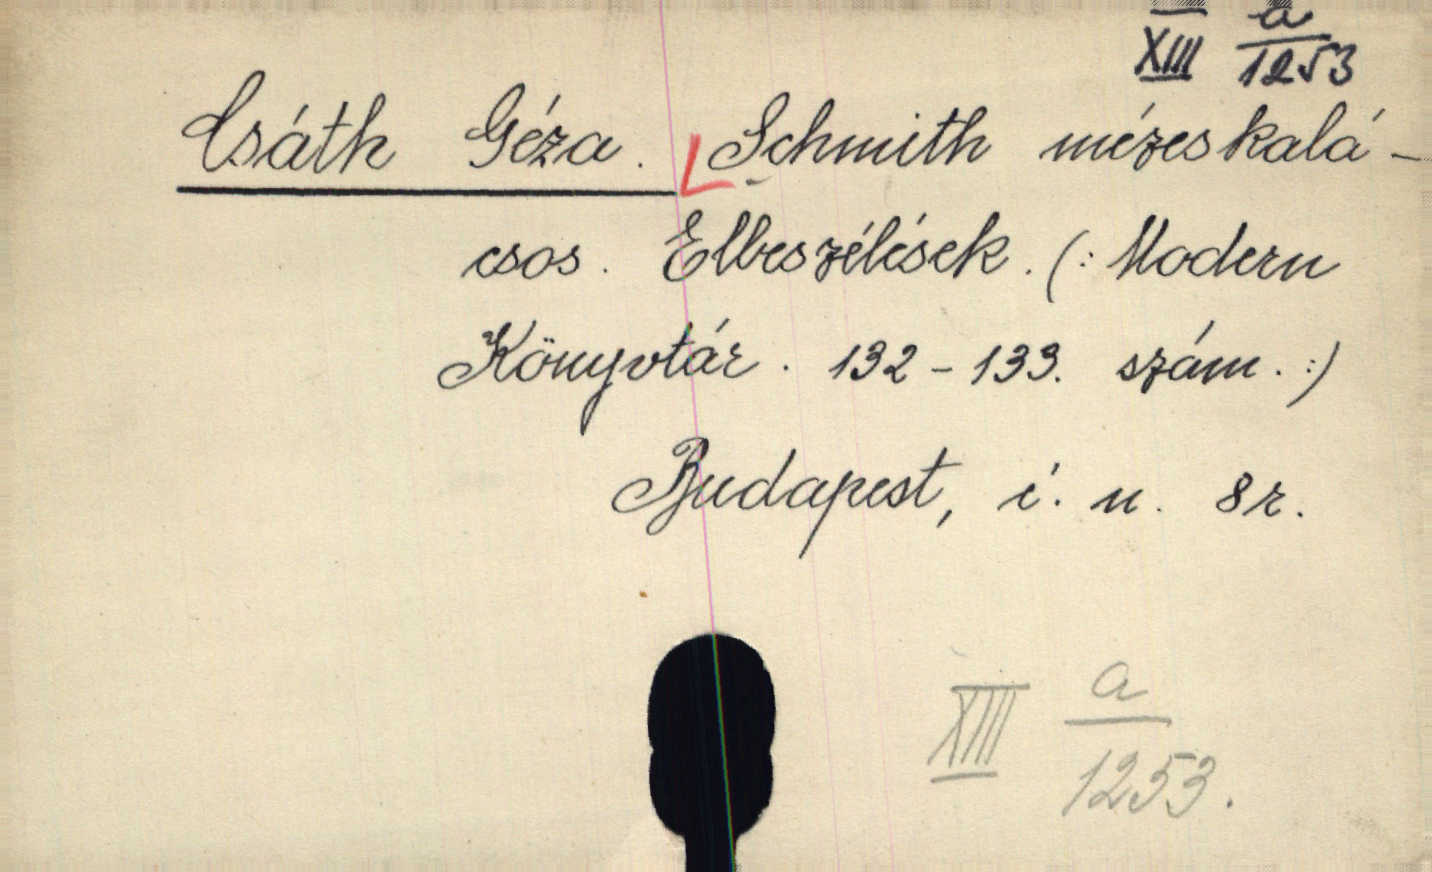 XIII a/1253
Csáth Géza. Schmith mézeskalá-
csos. Elbeszélések. (: Modern
Könyvtár. 132-133. szám. :)
Budapest, é. n. 8r.
XIII a/1253.